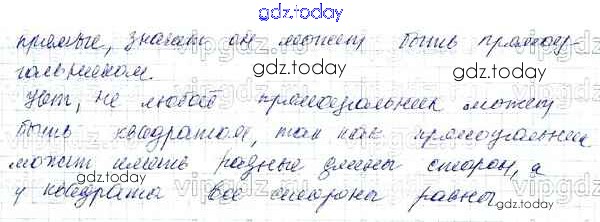 gdz.today
прямые, значит он может быть прямоу-
гольником.
gdz.today
gdz.today
Нет, не любой прямоугольник может
быть квадратом, так как прямоугольник
gdz.today
может иметь разные длины сторон, а
у квадрата все стороны равны
gdz.today